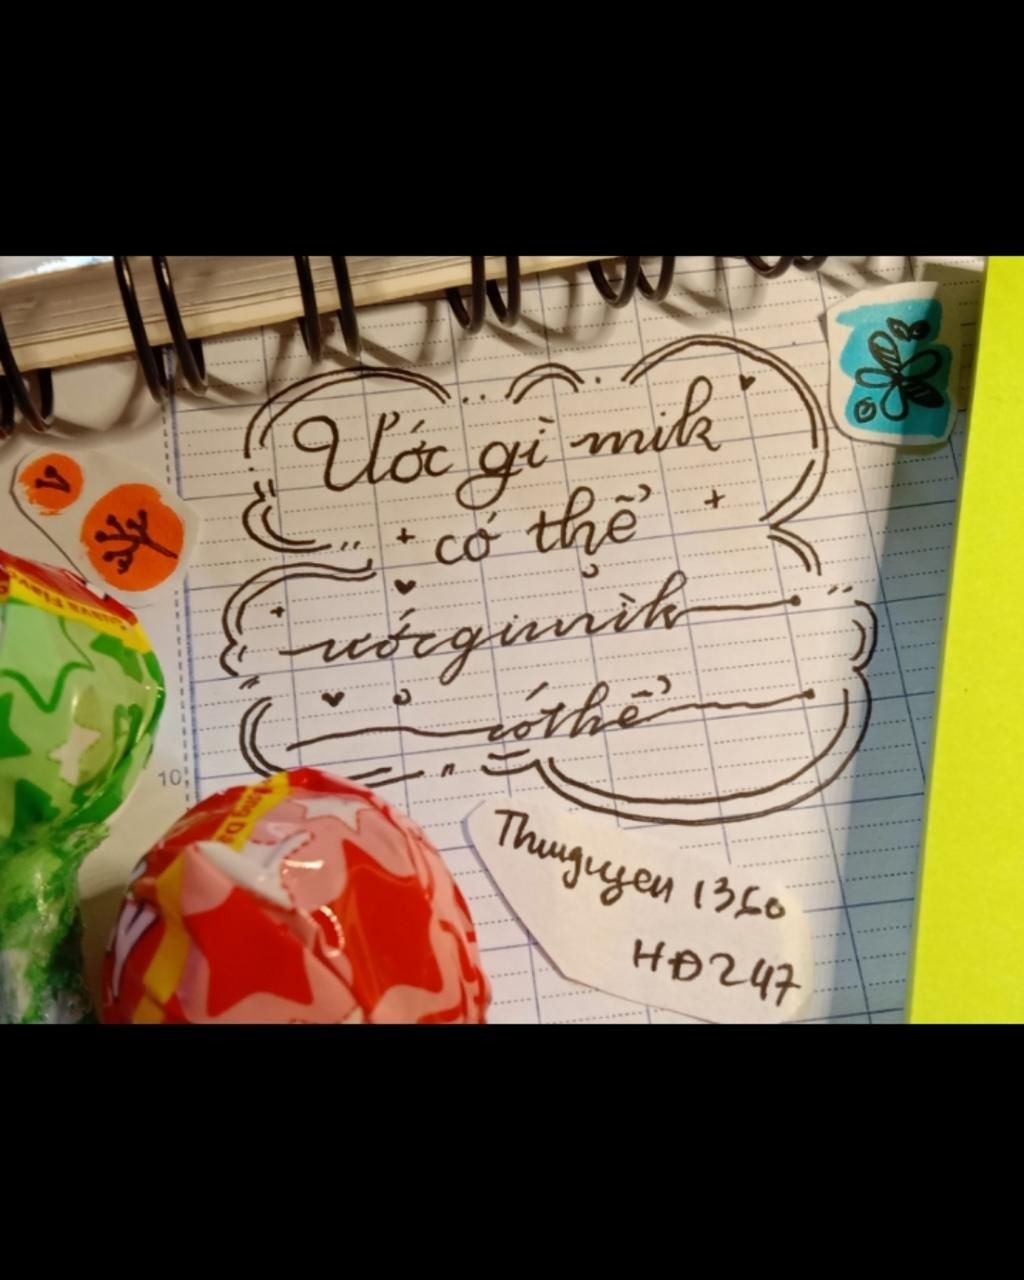 Ước gì mik
có thể
ước gì mik
có thể
Thuuguyen 1360
HĐ247
10